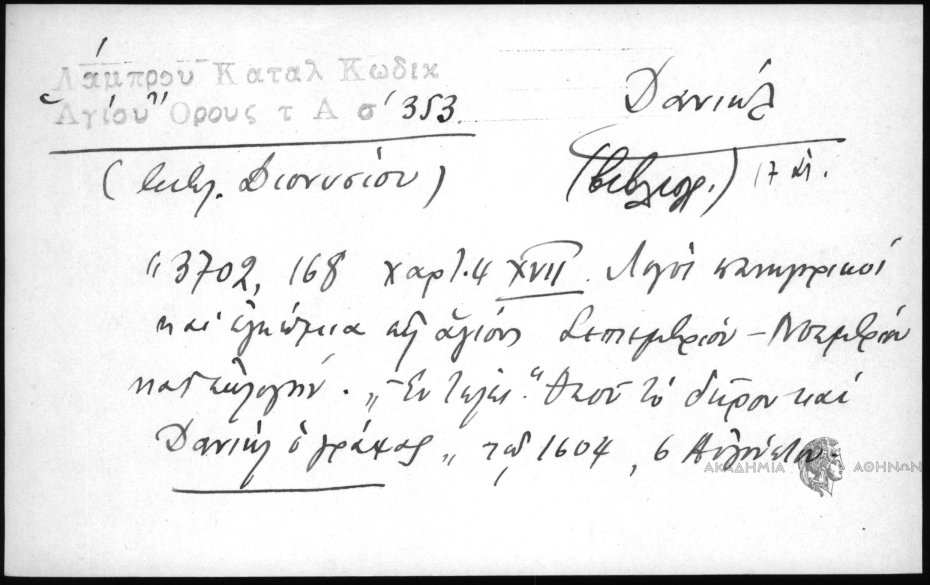 Λάμπρου Καταλ Κωδικ
Ἁγίου Ὄρους τ Α σ 353.
Δανιήλ
(βιβλ. Διονυσίου)
(βιβλιογρ.) 17 αἰ.
"3702, 168 χαρτ. 4 XVII. Λόγοι πανηγυρικοί
καὶ ἐγκώμια εἰς ἁγίους Σεπτεμβρίου – Νοεμβρίου
κατ' ἐκλογήν. „Ἐν τέλει: "Θεοῦ τὸ δῶρον καὶ
Δανιὴλ ὁ γράψας „ τῷ 1604, 6 Αὐγούστου.
ΑΚΑΔΗΜΙΑ ΑΘΗΝΩΝ